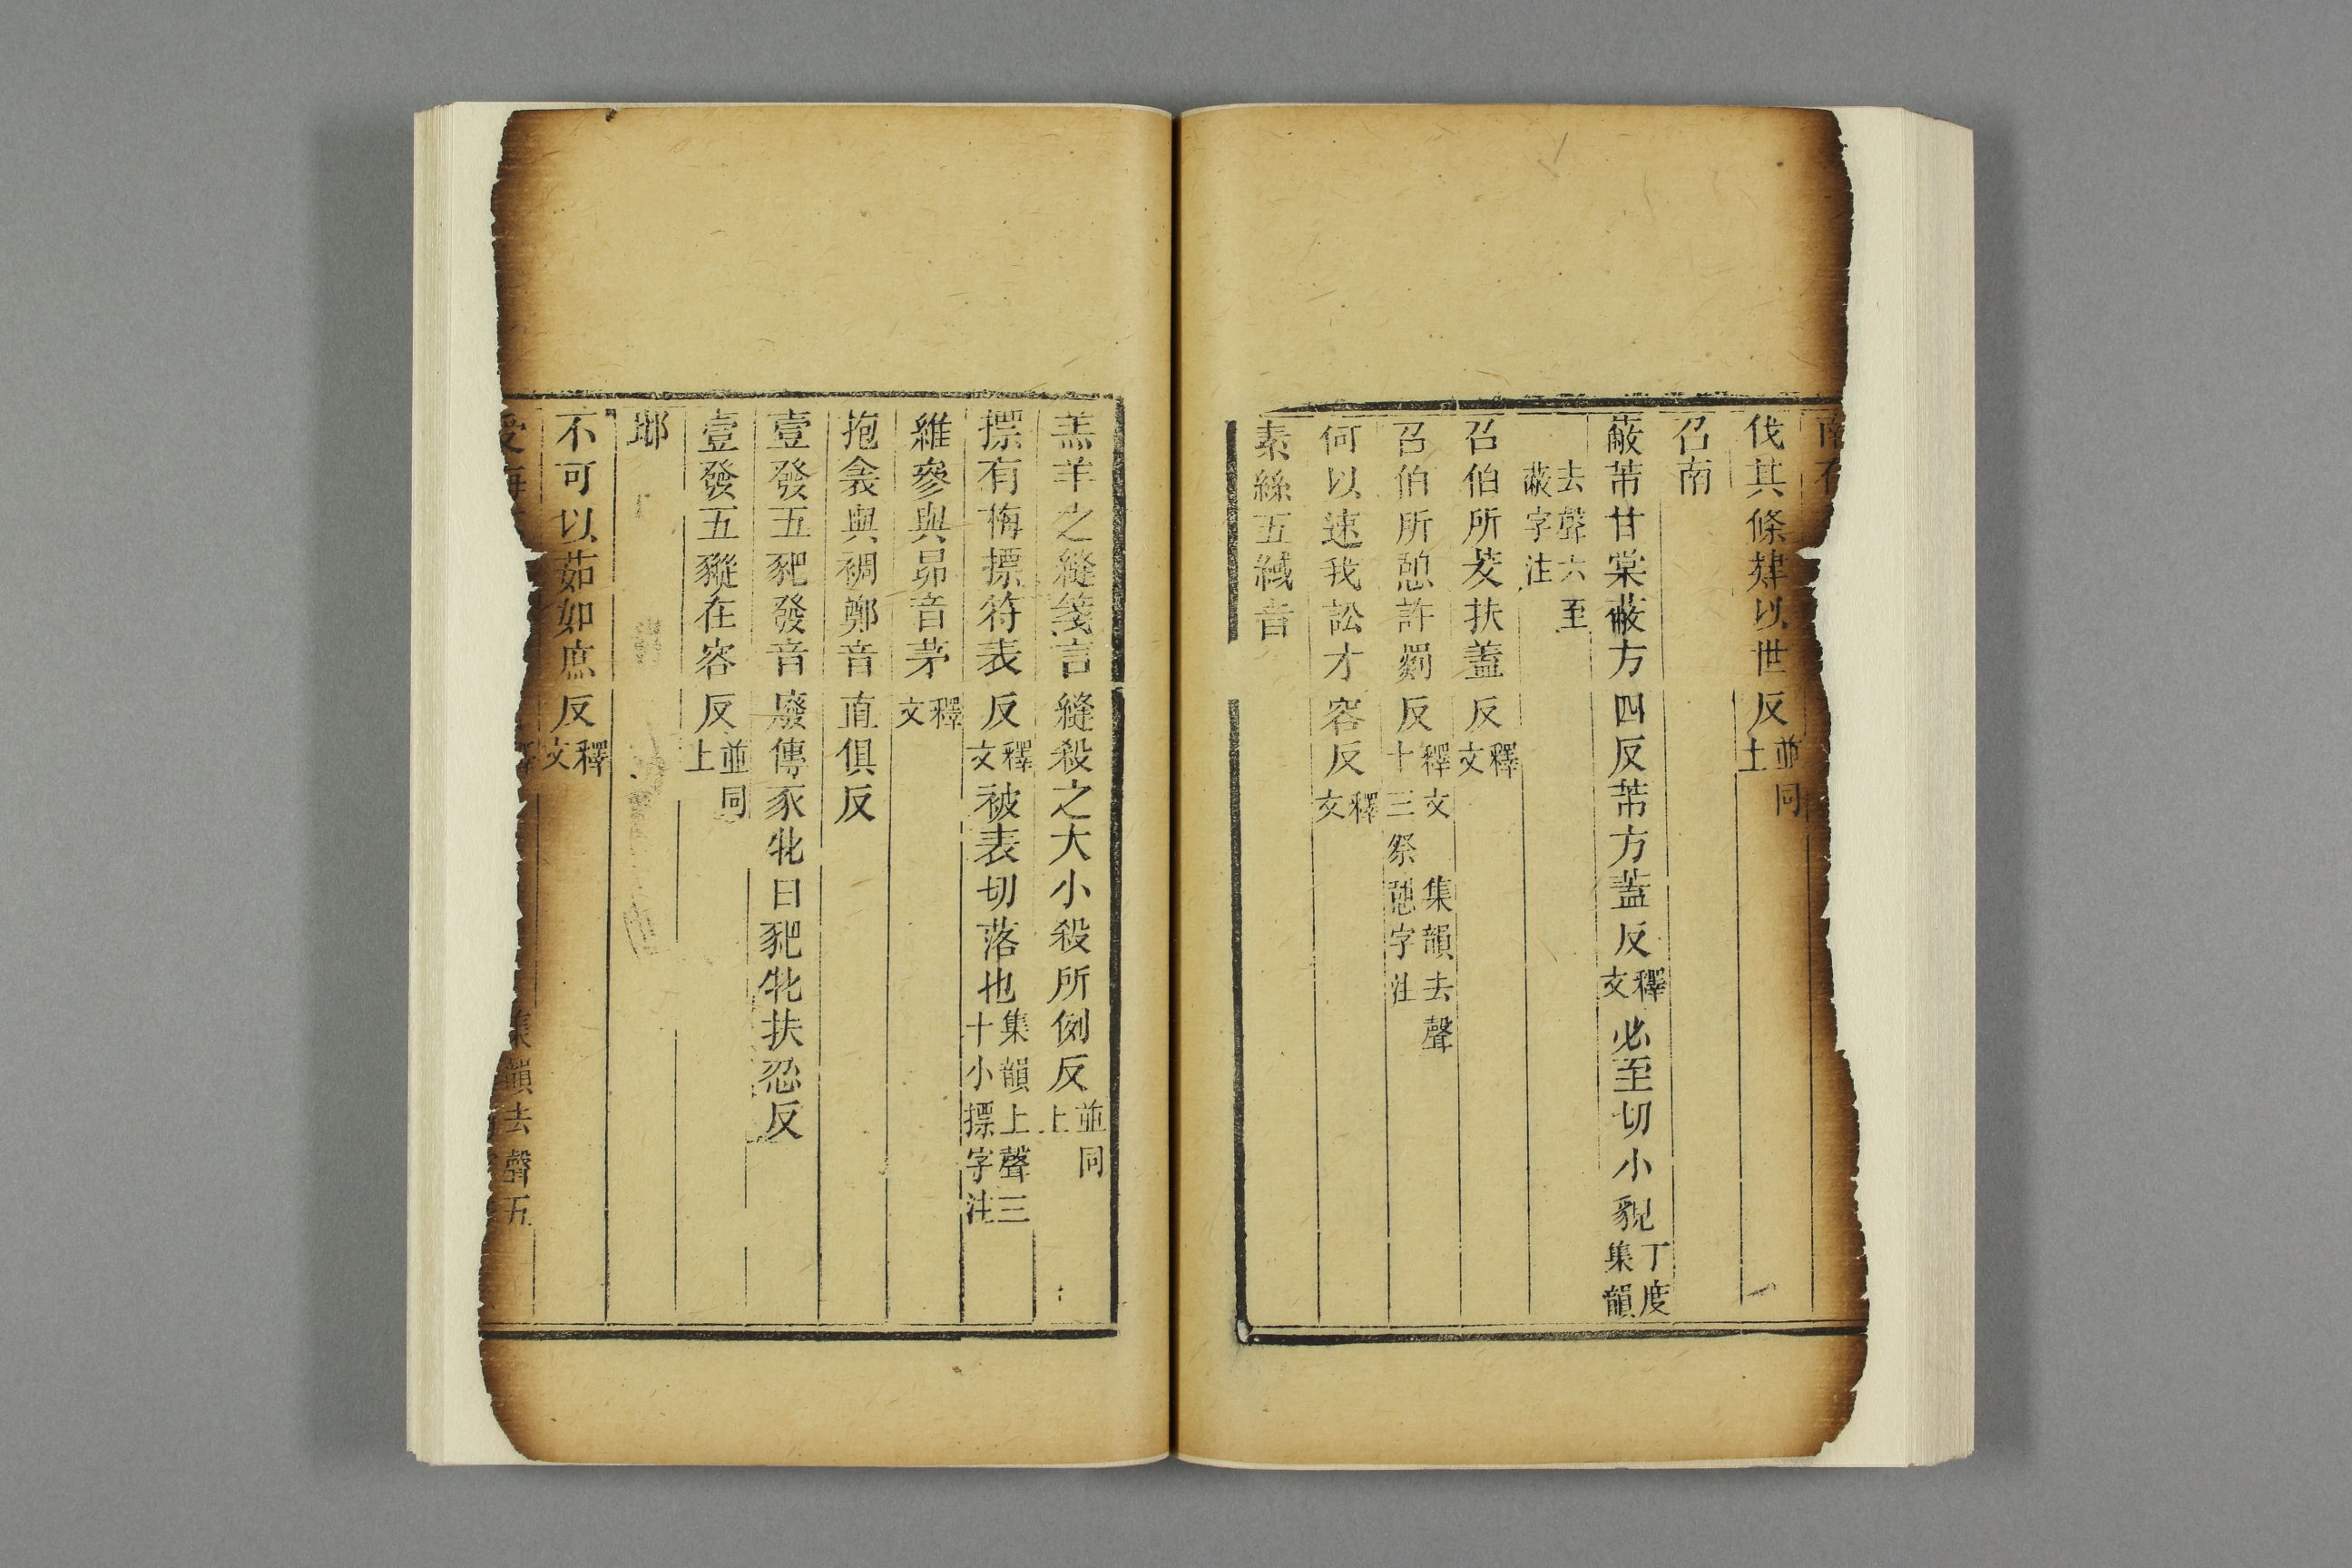 南有
伐其條肄以世反並同上
召南
蔽芾甘棠蔽方四反芾方蓋反釋文必至切小皃丁度集韻
去聲六至蔽字注
召伯所茇扶蓋反釋文
召伯所憩許罽反釋文集韻去聲十三祭憩字注
何以速我訟才容反釋文
素絲五緎音
羔羊之縫箋言縫殺之大小殺所例反並同上
摽有梅摽符表反釋文被表切落也集韻上聲三十小摽字注
維參與昴音茅釋文
抱衾與裯鄭音直俱反
壹發五豝發音廢傳豕牝曰豝牝扶忍反
壹發五豵在容反並同上
邶
不可以茹如庶反釋文
受侮 集韻去聲五